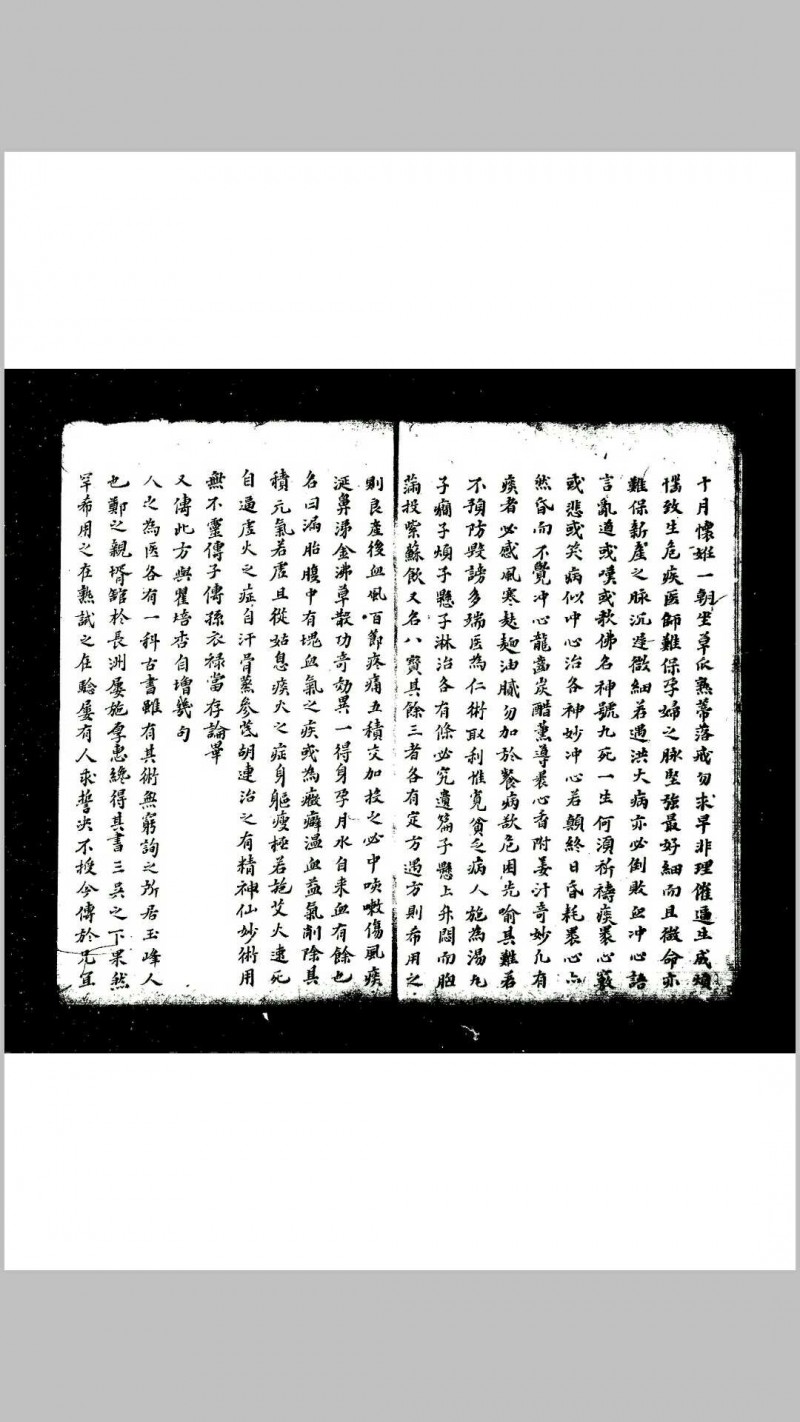 十月懷姙一朝坐草瓜熟蒂落戒勿求早非理催逼生成煩
惱致生危疾医師難保孕婦之脉堅強最好細而且微命亦
難保新產之脉沉遲微細若遇洪大病亦必倒敗血冲心語
言亂道或嘆或歌佛名神號九死一生何須祈禱痰裹心竅
或悲或笑病似冲心治各神妙冲心若顛終日昏耗裹心亦
然昏而不覺冲心龍齒炭醋薰導裹心香附姜汁奇妙凡有
痰者必感風寒麸麺油膩勿加於餐病故危困先喻其難若
不預防毀謗多端医為仁術取利惟寬貧乏病人施為湯丸
子癇子煩子懸子淋治各有條必究遺篇子懸上升悶而胞
滿投紫蘇飲又名八寶其餘三者各有定方遇方則希用之
則良產後血風百節疼痛五積交加投之必中咳嗽傷風痰
涎鼻涕金沸草散功奇効異一得身孕月水自来血有餘也
名曰漏胎腹中有塊血氣之疾或為癥癖温血益氣削除其
積元氣若虛且從姑息痰火之症身軀瘦極若施艾火速死
自逼虛火之症自汗骨蒸參茂胡連治之有精神仙妙術用
無不靈傳子傳孫衣祿當存論畢
又傳此方與瞿培杏自增幾句
人之為医各有一科古書雖有其術無窮詢之所居玉峰人
也鄭之親壻舘於長洲屢施孚惠纔得其書三吳之下果然
罕希用之在熟試之在騐屢有人求誓决不授今傳於兄宜